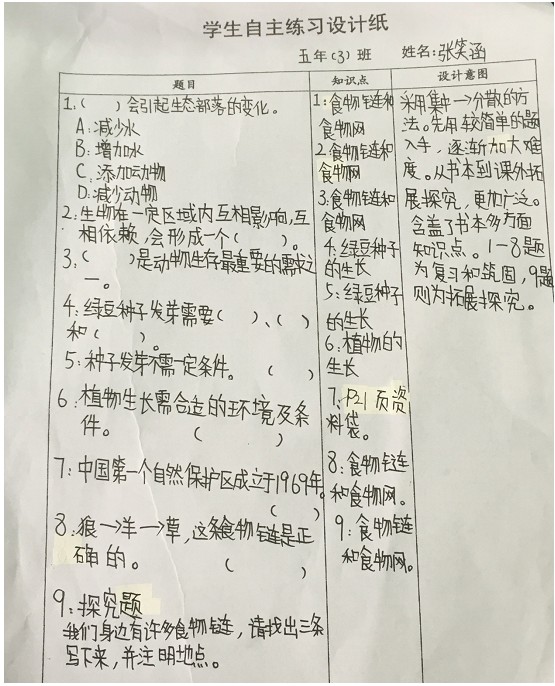 学生自主练习设计纸
五年(3)班 姓名:张笑涵
题目
1.( )会引起生态部落的变化。
A:减少水
B:增加水
C:添加动物
D:减少动物
2:生物在一定区域内互相影响,互
相依赖,会形成一个( )。
3:( )是动物生存最重要的需求之
一。
4:绿豆种子发芽需要( )、( )
和( )。
5:种子发芽不需一定条件。( )
6:植物生长需合适的环境及条
件。( )
7:中国第一个自然保护区成立于1969年。
( )
8:狼→羊→草,这条食物链是正
确的。( )
9:探究题
我们身边有许多食物链,请找出三条
写下来,并注明地点。
知识点
1:食物链和
食物网
2.食物链和
食物网
3.食物链和
食物网
4:绿豆种子
的生长
5:绿豆种子
的生长
6:植物的
生长
7:P21页资
料袋。
8:食物链
和食物网。
9:食物链
和食物网。
设计意图
采用集中→分散的方
法。先用较简单的题
入手,逐渐加大难
度。从书本到课外拓
展探究,更加广泛。
含盖了书本多方面
知识点。1-8题
为复习和巩固,9题
则为拓展探究。